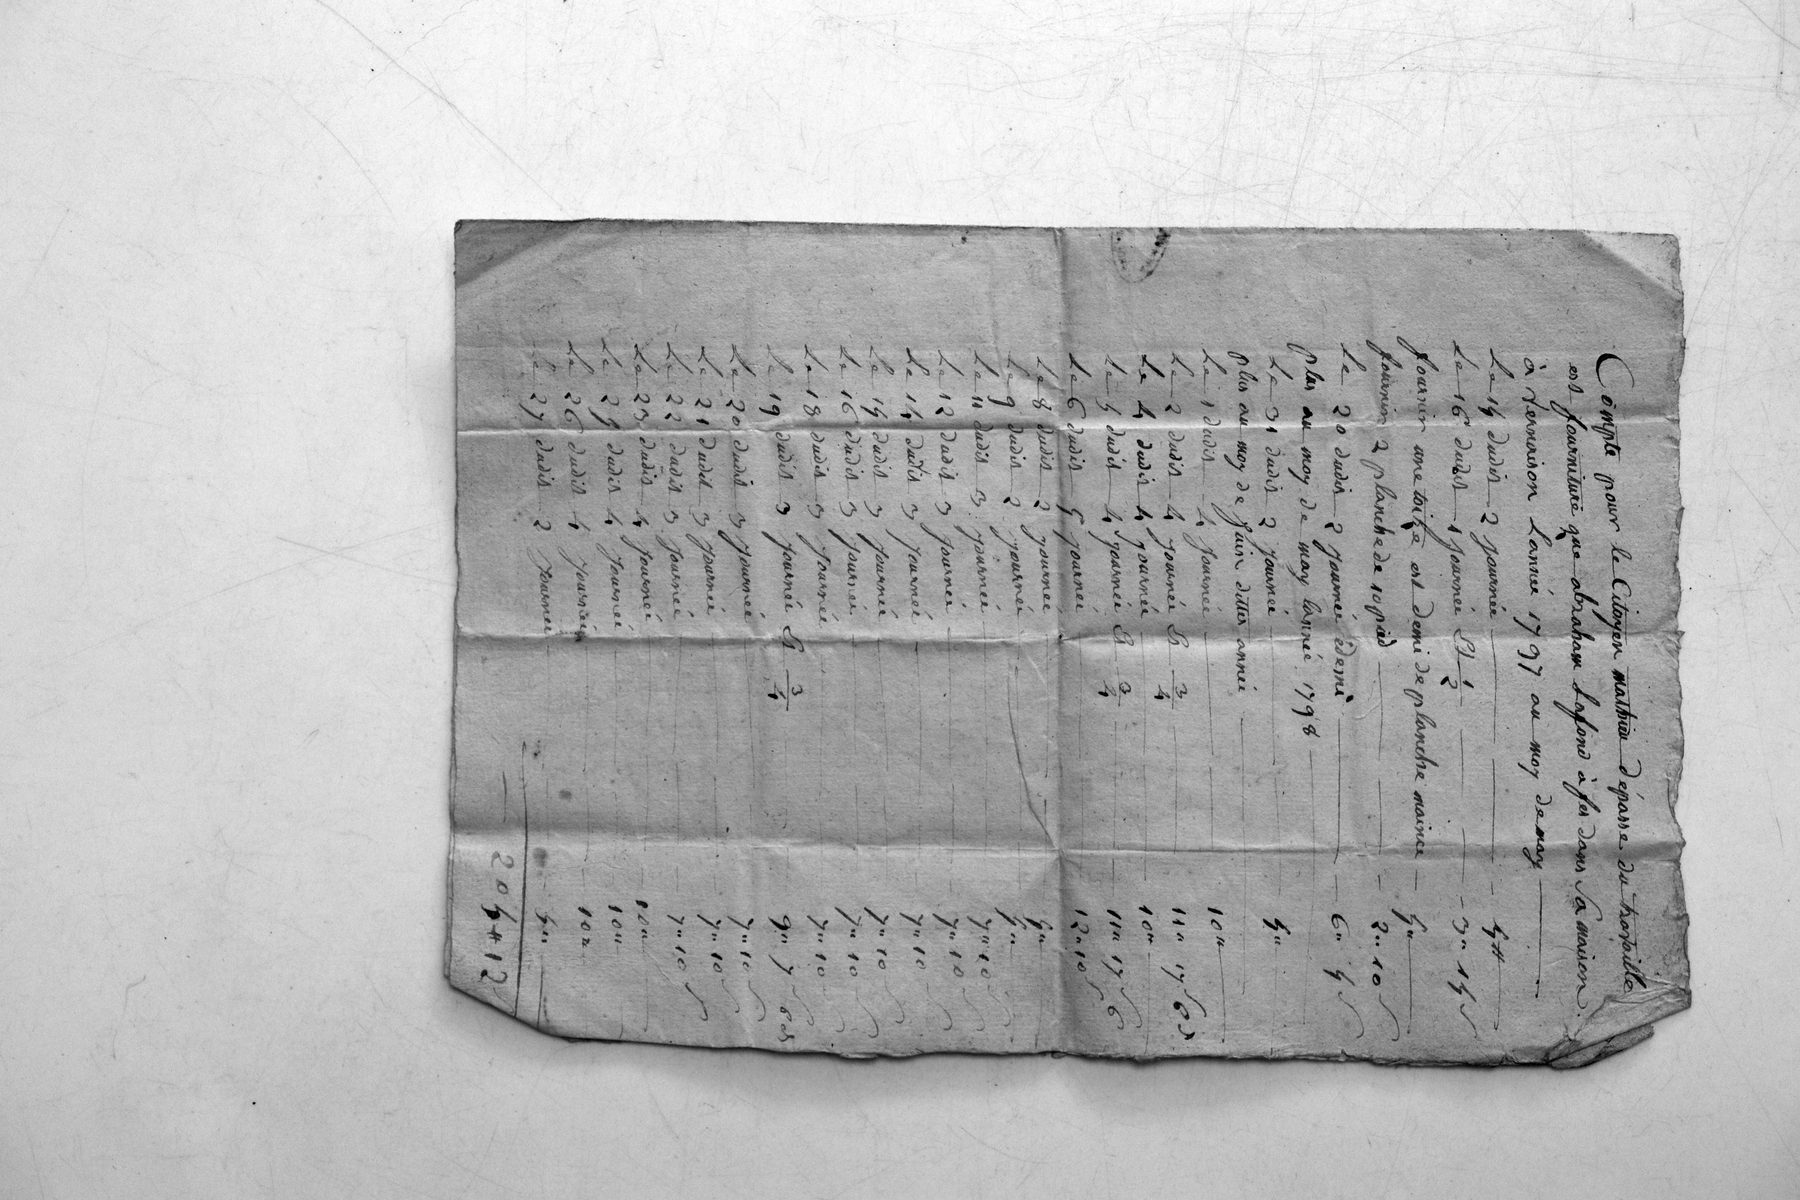 Compte pour le Citoyen mathieu depasse du travaille
est fourniture que abraham Laffond à fes dans Sa maison
à tennaison Lanné 1797 au moy de may
Le 15 dudit 2 journée 5 ₶
Le 16 dudit 1 journée Et 1/2 3 " 15 s
fournir une toise est demi de planche mainse 5 "
fournir 2 planche de 10 pied 2 " 10 s
Le 20 dudit 2 journée édemi 6 " 5 s
plus au moy de may lanné 1798
Le 31 dudit 2 journée 5 "
plus au moy de Juin ditte année
Le 1 dudit 4 journée 10 "
Le 2 dudit 4 journée Et 3/4 11 " 17 s 6 d
Le 4 dudit 4 journée 10 "
Le 5 dudit 4 journée Et 3/4 11 " 17 s 6
Le 6 dudit 5 journée 12 " 10 s
Le 8 dudit 2 journée 5 "
Le 9 dudit 2 journée 5 "
Le 11 dudit 3 journée 7 " 10 s
Le 12 dudit 3 journée 7 " 10 s
Le 14 dudit 3 journée 7 " 10 s
Le 15 dudit 3 journée 7 " 10 s
Le 16 dudit 3 journée 7 " 10 s
Le 18 dudit 3 journée 7 " 10 s
Le 19 dudit 3 journée Et 3/4 9 " 7 s 6 d
Le 20 dudit 3 journée 7 " 10 s
Le 21 dudit 3 journée 7 " 10 s
Le 22 dudit 3 journée 7 " 10 s
Le 23 dudit 4 journée 10 "
Le 25 dudit 4 journée 10 "
Le 26 dudit 4 journée 10 "
Le 27 dudit 2 journée 5 "
205 ₶ 12